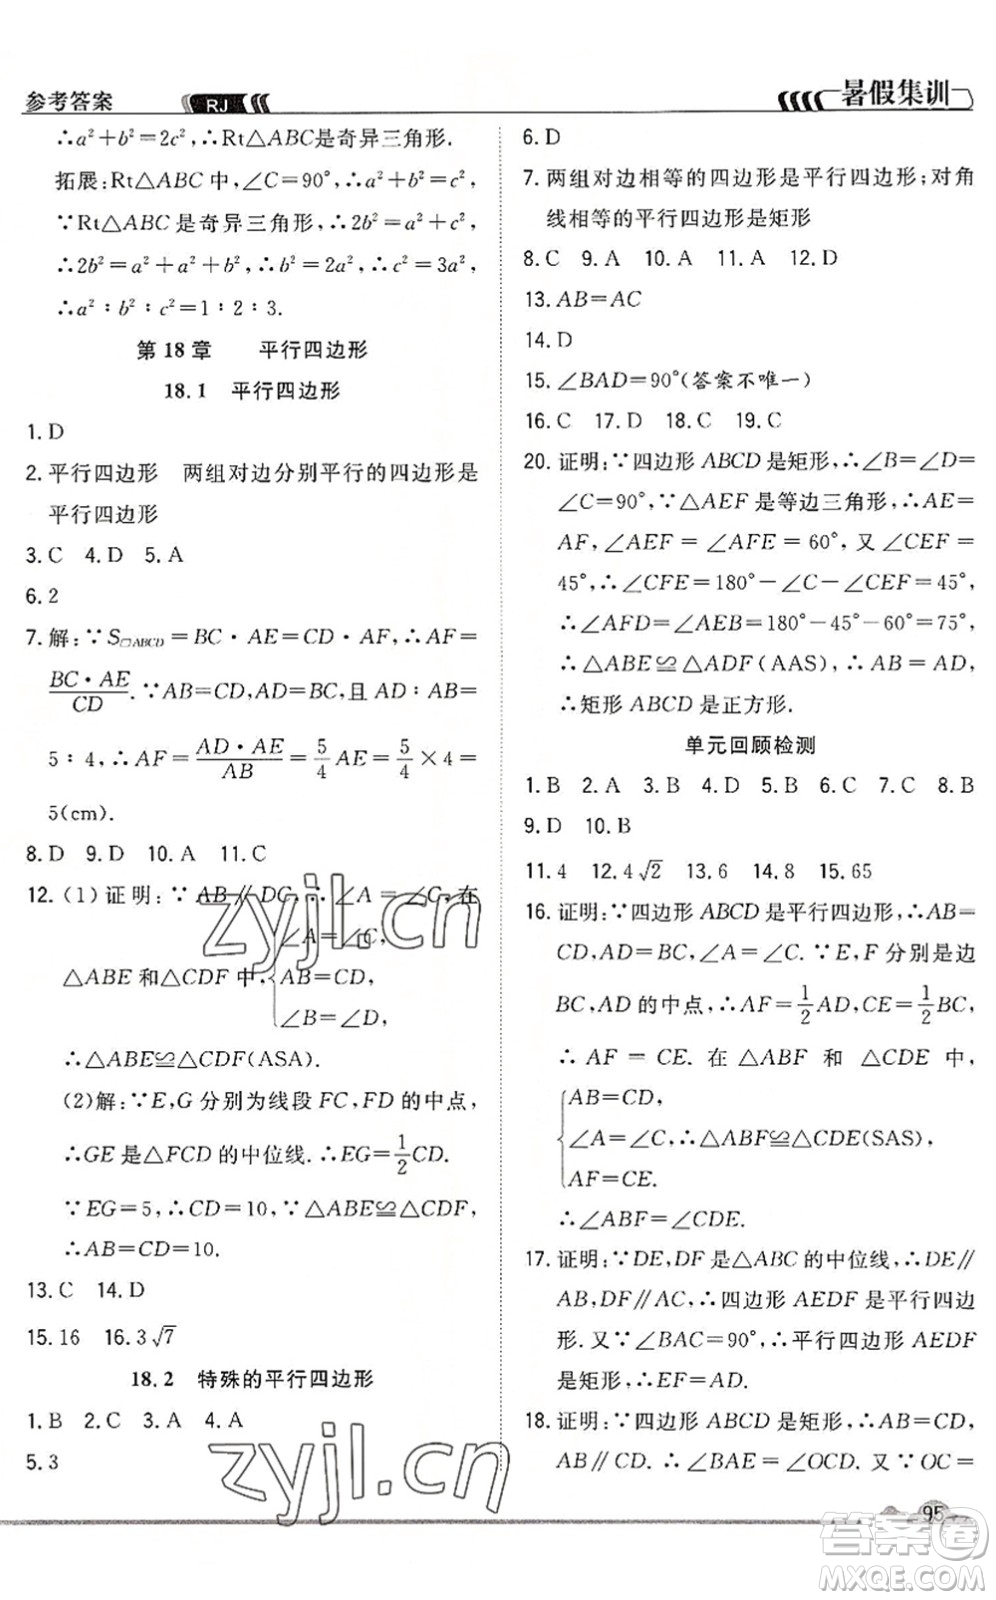 参考答案 RJ 暑假集训
∴a²+b²=2c²,∴Rt△ABC是奇异三角形.
拓展:Rt△ABC中,∠C=90°,∴a²+b²=c²,
∵Rt△ABC是奇异三角形,∴2b²=a²+c²,
∴2b²=a²+a²+b²,∴b²=2a²,∴c²=3a²,
∴a²∶b²∶c²=1∶2∶3.
第18章 平行四边形
18.1 平行四边形
1. D
2. 平行四边形 两组对边分别平行的四边形是
平行四边形
3. C 4. D 5. A
6. 2
7. 解:∵S▱ABCD=BC·AE=CD·AF,∴AF=
BC·AE/CD.∵AB=CD,AD=BC,且AD∶AB=
5∶4,∴AF=AD·AE/AB=5/4AE=5/4×4=
5(cm).
8. D 9. D 10. A 11. C
12. (1)证明:∵AB∥DC,∴∠A=∠C,在
△ABE和△CDF中,{∠A=∠C,
AB=CD,
∠B=∠D,
∴△ABE≌△CDF(ASA).
(2)解:∵E,G分别为线段FC,FD的中点,
∴GE是△FCD的中位线.∴EG=1/2CD.
∵EG=5,∴CD=10,∵△ABE≌△CDF,
∴AB=CD=10.
13. C 14. D
15. 16 16. 3√7
18.2 特殊的平行四边形
1. B 2. C 3. A 4. A
5. 3
6. D
7. 两组对边相等的四边形是平行四边形;对角
线相等的平行四边形是矩形
8. C 9. A 10. A 11. A 12. D
13. AB=AC
14. D
15. ∠BAD=90°(答案不唯一)
16. C 17. D 18. C 19. C
20. 证明:∵四边形ABCD是矩形,∴∠B=∠D=
∠C=90°,∵△AEF是等边三角形,∴AE=
AF,∠AEF=∠AFE=60°,又∠CEF=
45°,∴∠CFE=180°-∠C-∠CEF=45°,
∴∠AFD=∠AEB=180°-45°-60°=75°,
∴△ABE≌△ADF(AAS),∴AB=AD,
∴矩形ABCD是正方形.
单元回顾检测
1. B 2. A 3. B 4. D 5. D 6. C 7. C 8. B
9. D 10. B
11. 4 12. 4√2 13. 6 14. 8 15. 65
16. 证明:∵四边形ABCD是平行四边形,∴AB=
CD,AD=BC,∠A=∠C.∵E,F分别是边
BC,AD的中点,∴AF=1/2AD,CE=1/2BC,
∴AF=CE.在△ABF和△CDE中,
{AB=CD,
∠A=∠C,∴△ABF≌△CDE(SAS),
AF=CE.
∴∠ABF=∠CDE.
17. 证明:∵DE,DF是△ABC的中位线,∴DE∥
AB,DF∥AC,∴四边形AEDF是平行四边
形.又∵∠BAC=90°,∴平行四边形AEDF
是矩形,∴EF=AD.
18. 证明:∵四边形ABCD是矩形,∴AB=CD,
AB∥CD.∴∠BAE=∠OCD.又∵OC=
95
zyjl.cn
zyjl.cn
答案卷
MXQE.COM